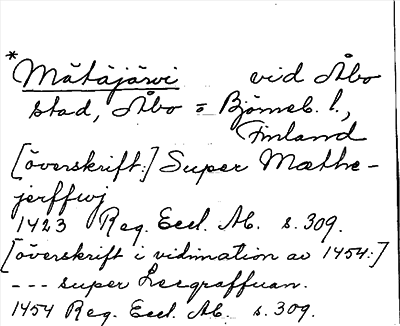 *Mätäjärvi vid Åbo
stad, Åbo = Björneb. l.,
Finland
[överskrift:] Super Mæthe-
jerffwj
1423 Reg. Eccl. Ab. s. 309.
[överskrift i vidimation av 1454:]
--- super Leegraffuan.
1454 Reg. Eccl. Ab. s. 309.